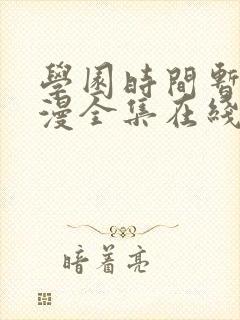 學園時間暫
漫全集在綫
暗着亮